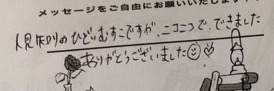 メッセージをご自由にお願いいたします
人見知りのひどいむすこですが、ニコニコで、できました
ありがとうございました